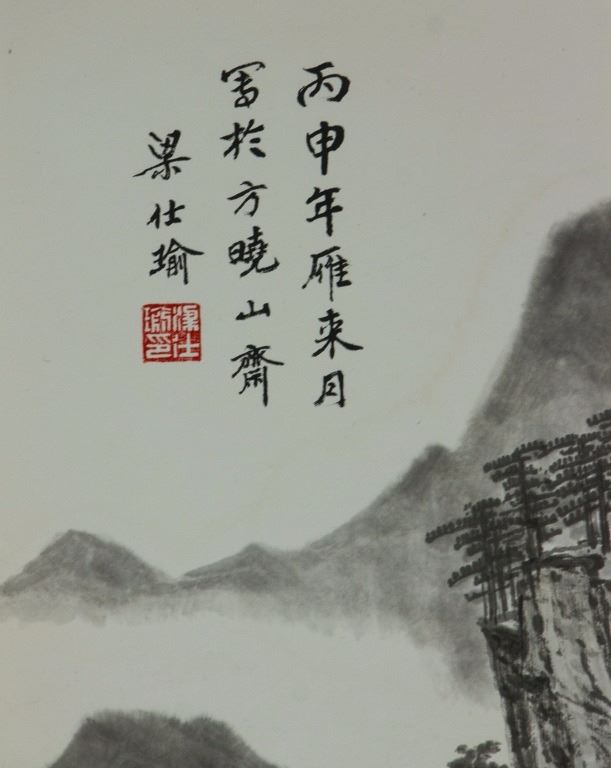 丙申年雁来月
写於方曉山齋
梁仕瑜
梁仕
瑜印